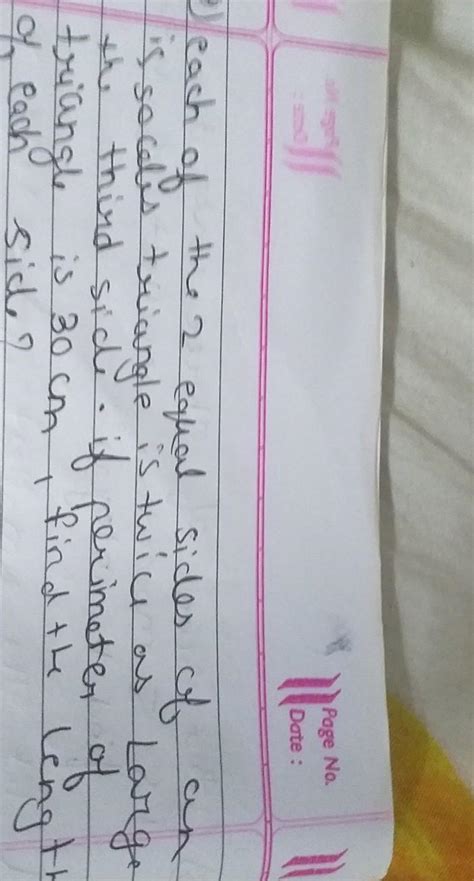 Page No.
Date :
each of the 2 equal sides of an
is socales triangle is twice as large
the third side. if perimeter of
triangle is 30 cm, find the length
of each side?